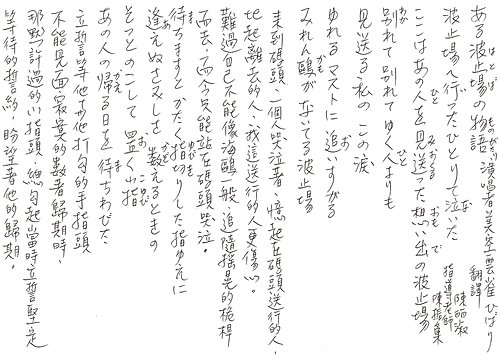 ある波止場の物語 演唱者 美空雲雀 ひばり
翻譯 陳丽淑
指導老師 陳振
波止場へ行ったひとりで泣いた
ここはあの人を見送った想い出の波止場
別れて別れてゆく人よりも
見送る私のこの涙
ゆれるマストに追いすがる
みれん鴎がないてる波止場
來到碼頭一個人哭泣著、憶起在碼頭送行的人、
比起離去的人、我這送行的人更傷心。
難過自己不能像海鷗般、追隨搖晃的桅桿
而去、而今只能站在碼頭哭泣。
待ちますとかたく指切りした指ゆえに
逢えぬさみしさ数えるときの
そっとのこして置く小指
あの人の帰る日を待ちわびた
立誓等他才和他打勾的手指頭
不能見面寂寞的數著歸期時、
那默計過的小指頭、總勾起當時立誓堅定
等待的誓約 盼望著他的歸期。